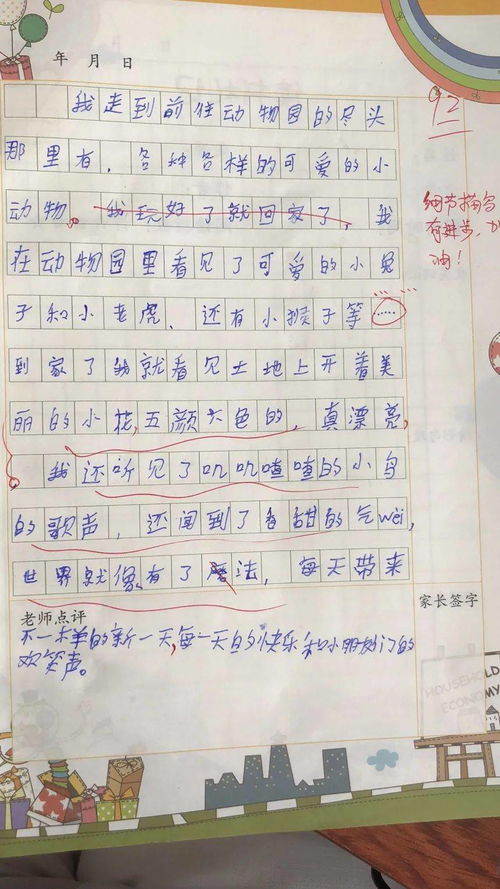 年 月 日
我走到前住动物园的尽头
92
那里有，各种各样的可爱的小
动物。我玩好了就回家了，我
细节描写
有进步，加
油！
在动物园里看见了可爱的小兔
子和小老虎、还有小猴子等……
到家了我就看见土地上开着美
丽的小花，五颜六色的，真漂亮，
我还听见了叽叽喳喳的小鸟
的歌声，还闻到了香甜的气wèi，
世界就像有了魔法，每天带来
老师点评
家长签字
不一样的新一天，每一天的快乐和小朋友门的
欢笑声。
HOUSEHOLD
ECONOMY